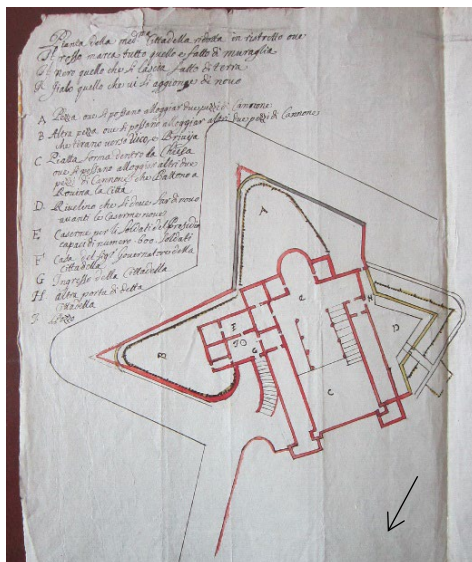 Pianta della med.ma Cittadella ridotta in ristretto oue
il rosso marca tutto quello e fatto di muraglia
il nero quello che si lascia fatto di terra
il gialo quello che ui si aggionge di nouo
A Pezza oue si possano alloggiar due pezzi di Cannone
B Altra pezza oue si possano alloggiar altri due pezzi di Cannone
che tirano verso Vico, e Briuija
C Piatta forma dentro la Chiesa
oue si possano alloggiar altri due
pezzi di Cannone che Battono a
Rouina la Città
D Riuelino che si deue far di nouo
auanti le Caserne noue
E Caserne per li Soldati del Presidio
capaci di numero 600 soldati
F Casa del Sig.r Gouernatore della
Cittadella
G Ingresso della Cittadella
H Altra porta di detta
Cittadella
J Pozzo
A
H
F
D
B
G
C